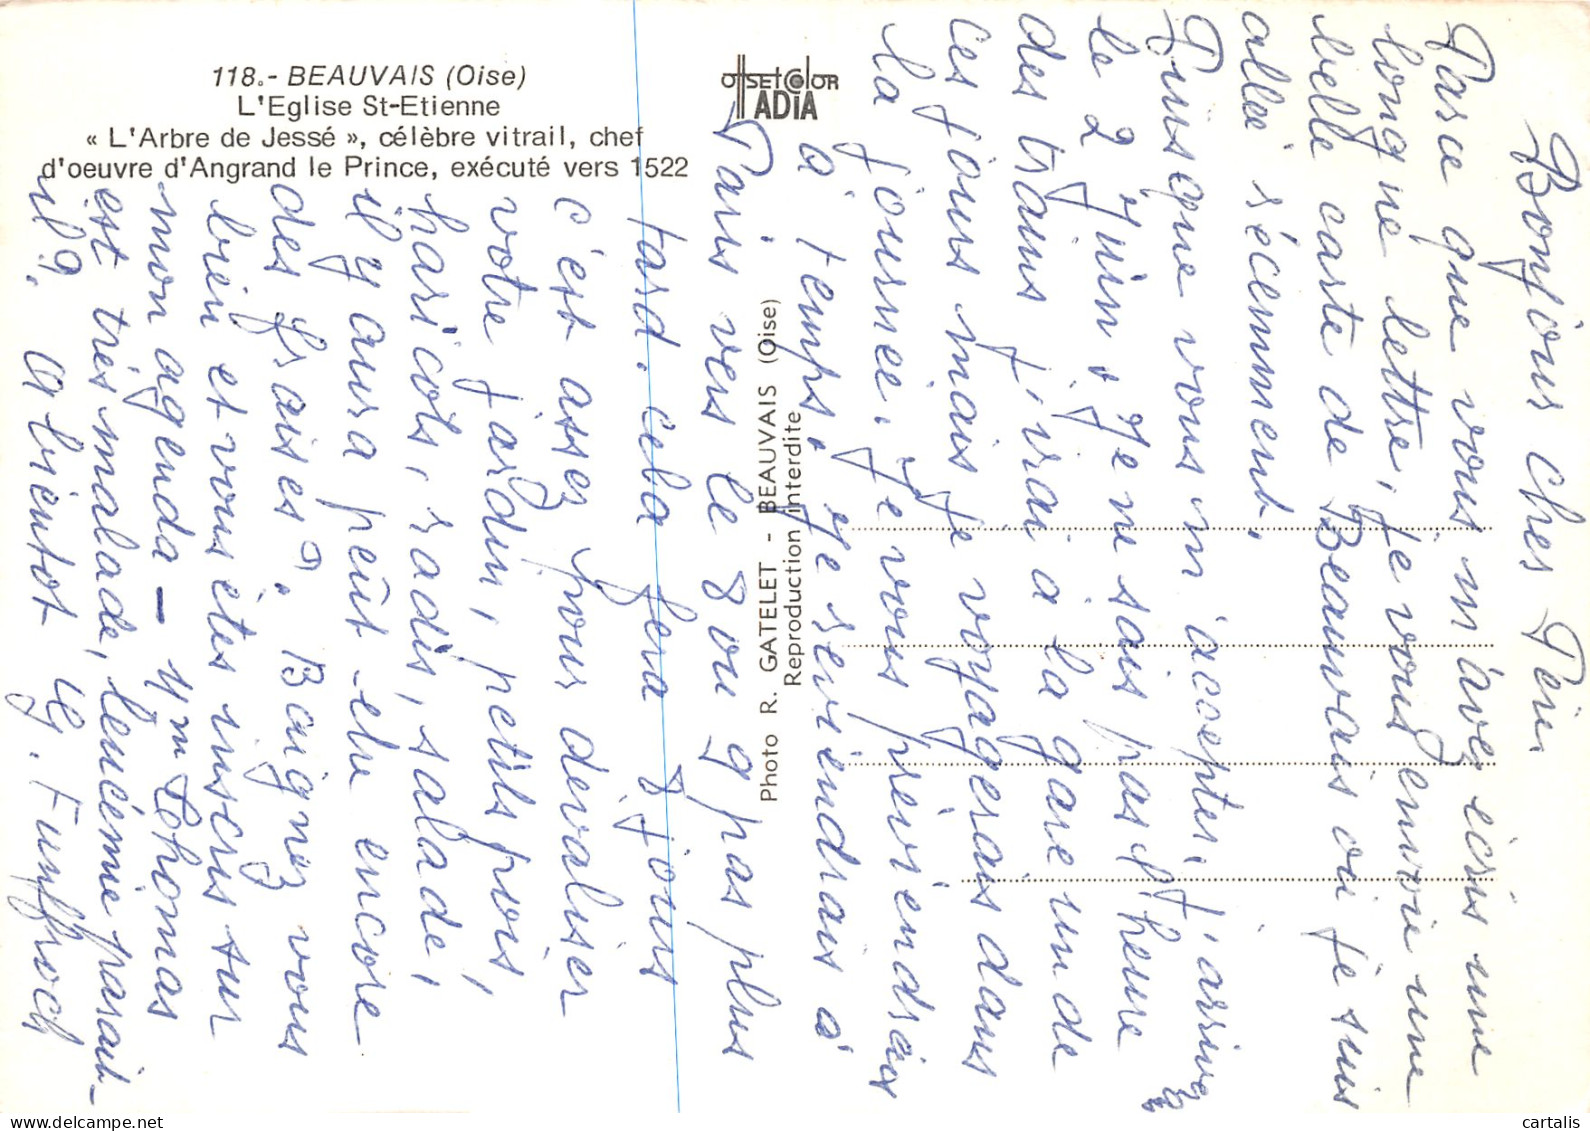 118.- BEAUVAIS (Oise)
L'Eglise St-Etienne
« L'Arbre de Jessé », célèbre vitrail, chef
d'oeuvre d'Angrand le Prince, exécuté vers 1522
offset color
ADIA
Photo R. GATELET - BEAUVAIS (Oise)
Reproduction interdite
Bonjour Cher Père.
Parce que vous m'avez écris une
longue lettre, je vous envoie une
belle carte de Beauvais où je suis
allée récemment.
Puisque vous m'acceptez, j'arrive
le 2 Juin. Je ne sais pas l'heure
des trains j'irai à la gare un de
ces jours mais je voyagerais dans
la journée. Je vous préviendrais
à temps. Je reviendrais à
Paris vers le 8 ou 9 pas plus
tard. Cela fera 8 jours
c'est assez pour dévaliser
votre jardin, petits pois,
haricots, radis, salade,
il y aura peût-etre encore
des fraises?. Baignez vous
bien et vous êtes inscris sur
mon agenda - Mm Thomas
est très malade, leucémie parait-
il?. A bientot